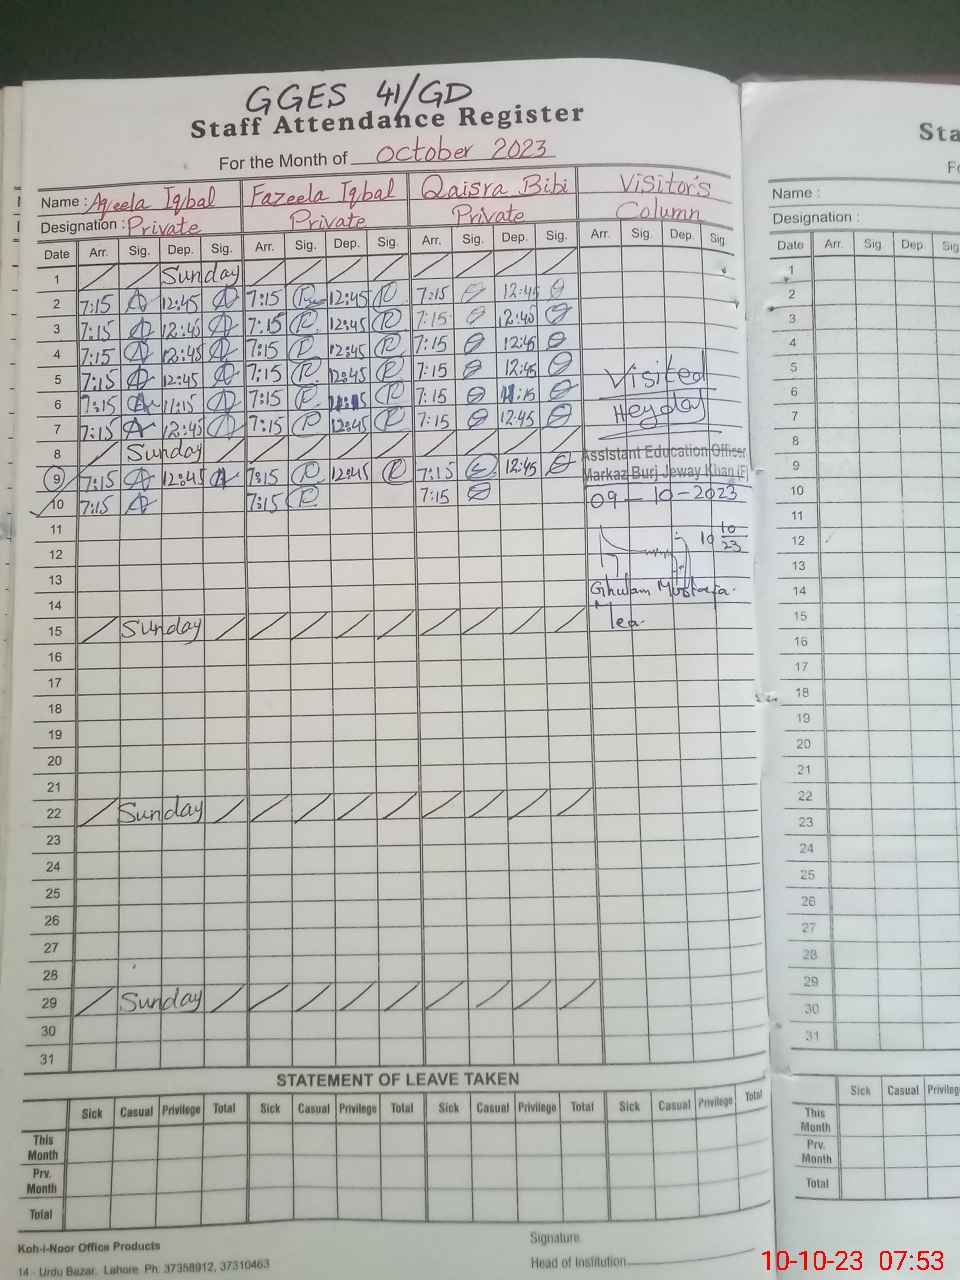 GGES 41/GD
Staff Attendance Register
For the Month of October 2023
Name : Aqeela Iqbal Fazeela Iqbal Qaisra Bibi Visitor's
Designation : Private Private Private Column
Date Arr. Sig. Dep. Sig. Arr. Sig. Dep. Sig. Arr. Sig. Dep. Sig. Arr. Sig. Dep. Sig.
1 Sunday
2 7:15 12:45 7:15 12:45 7:15 12:45
3 7:15 12:45 7:15 12:45 7:15 12:45
4 7:15 12:45 7:15 12:45 7:15 12:45
5 7:15 12:45 7:15 12:45 7:15 12:45
6 7:15 11:15 7:15 11:15 7:15 11:15
7 7:15 12:45 7:15 12:45 7:15 12:45
8 Sunday
9 7:15 12:45 7:15 12:45 7:15 12:45
10 7:15 7:15 7:15
11
12
13
14
15 Sunday
16
17
18
19
20
21
22 Sunday
23
24
25
26
27
28
29 Sunday
30
31
Visited
Assistant Education Officer
Markaz Burj Jeway Khan (F)
09-10-2023
10 10 23
Ghulam Mustafa
Mea.
STATEMENT OF LEAVE TAKEN
Sick Casual Privilege Total Sick Casual Privilege Total Sick Casual Privilege Total Sick Casual Privilege Total
This Month
Prv. Month
Total
Koh-i-Noor Office Products
14 - Urdu Bazar, Lahore Ph. 37358912, 37310463
Signature
Head of Institution
Sta
Name :
Designation :
Date Arr. Sig. Dep. Sig
1
2
3
4
5
6
7
8
9
10
11
12
13
14
15
16
17
18
19
20
21
22
23
24
25
26
27
28
29
30
31
Sick Casual Privileg
This Month
Prv. Month
Total
10-10-23 07:53